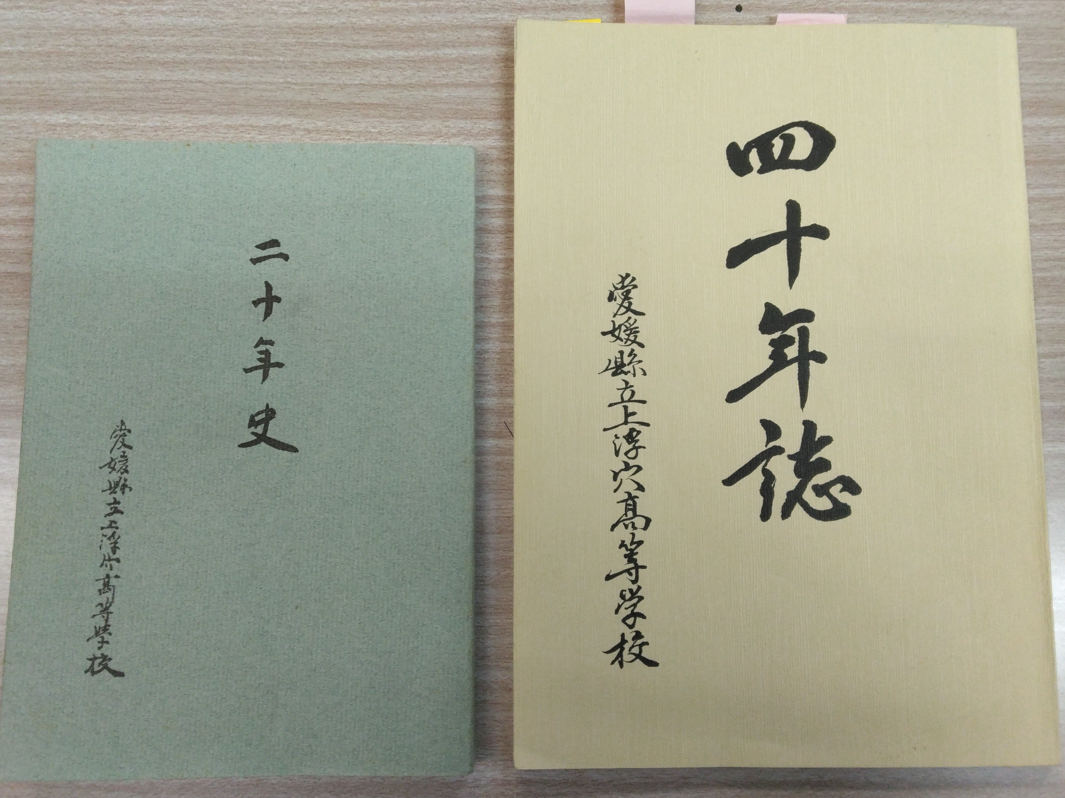 二十年史
愛媛縣立上浮穴高等學校
四十年誌
愛媛縣立上浮穴高等学校